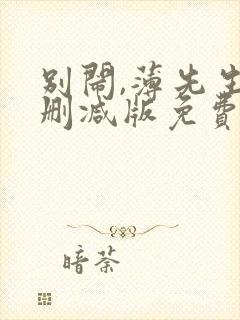 别闹,薄先生
删减版免费
暗荼